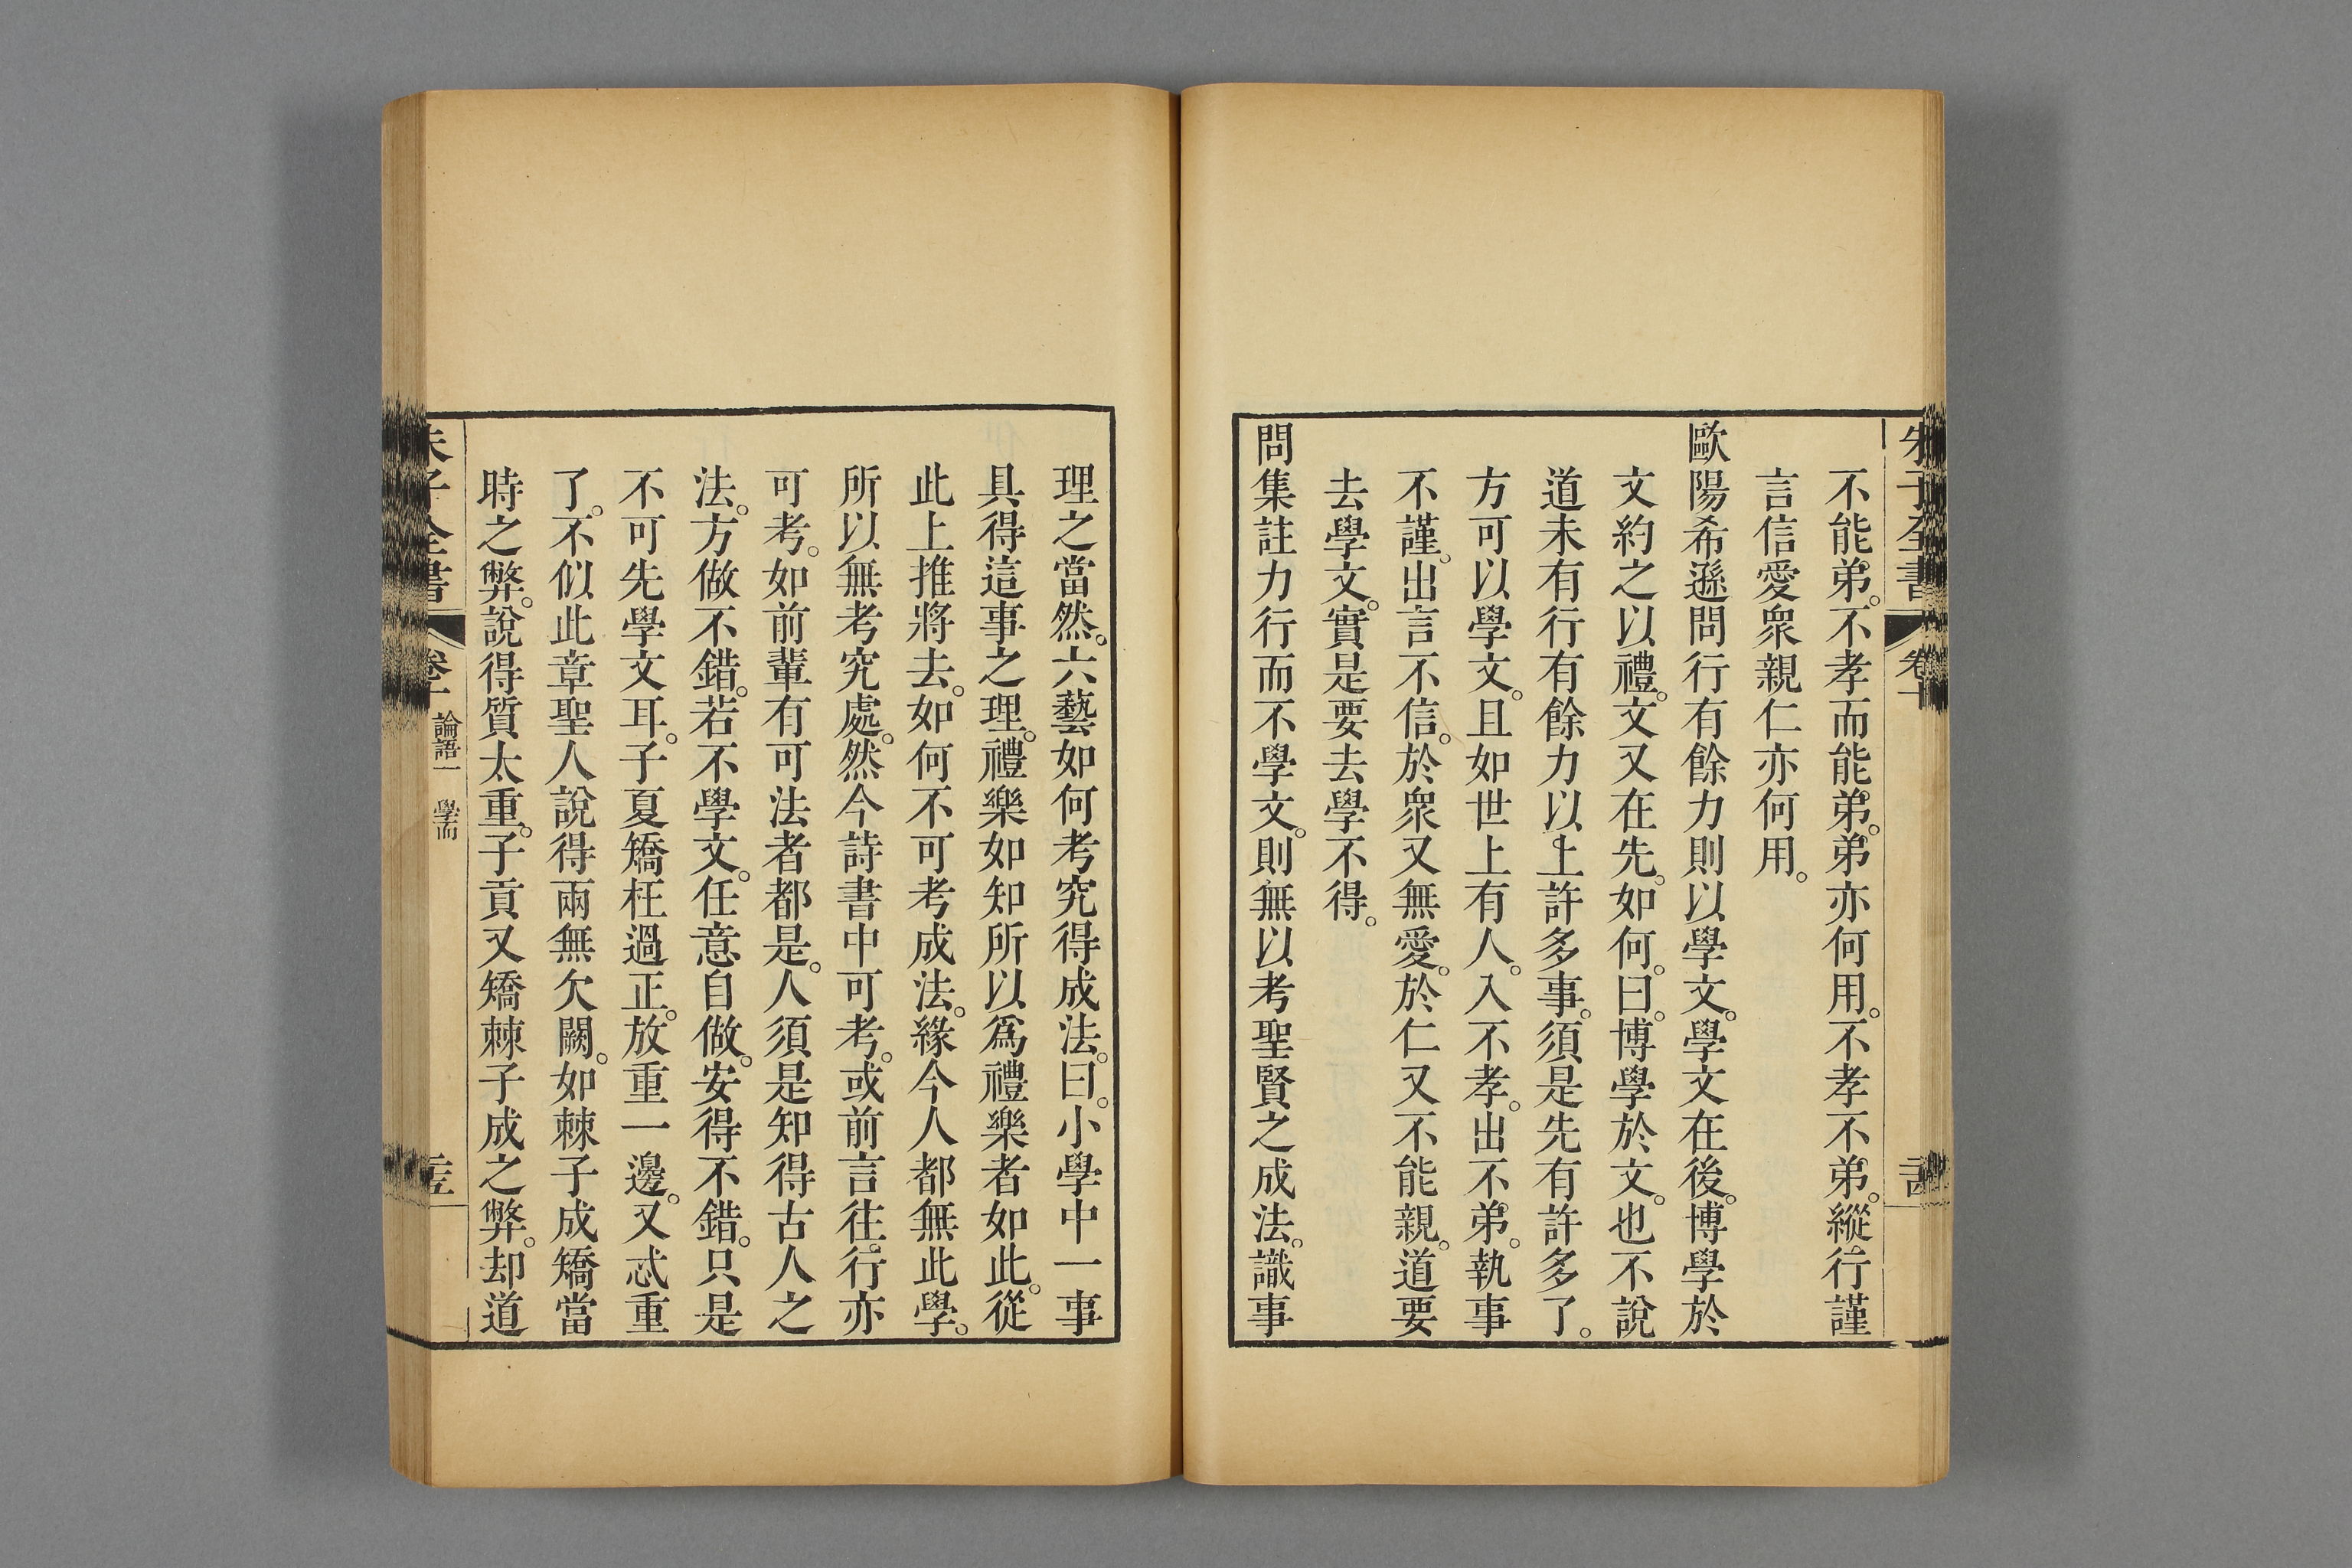 朱子全書 卷十
不能弟。不孝而能弟。弟亦何用。不孝不弟。縱行謹
言信愛衆親仁亦何用。
歐陽希遜問行有餘力則以學文。學文在後。博學於
文約之以禮。文又在先。如何。曰。博學於文。也不說
道未有行有餘力以上許多事。須是先有許多了。
方可以學文。且如世上有人。入不孝。出不弟。執事
不謹。出言不信。於衆又無愛。於仁又不能親。道要
去學文。實是要去學不得。
問集註力行而不學文。則無以考聖賢之成法。識事
理之當然。六藝如何考究得成法。曰。小學中一事
具得這事之理。禮樂如知所以爲禮樂者如此。從
此上推將去。如何不可考成法。緣今人都無此學。
所以無考究處。然今詩書中可考。或前言往行亦
可考。如前輩有可法者都是。人須是知得古人之
法。方做不錯。若不學文。任意自做。安得不錯。只是
不可先學文耳。子夏矯枉過正。放重一邊。又忒重
了。不似此章聖人說得兩無欠闕。如棘子成矯當
時之弊。說得質太重。子貢又矯棘子成之弊。却道
朱子全書 卷十 論語一 學而